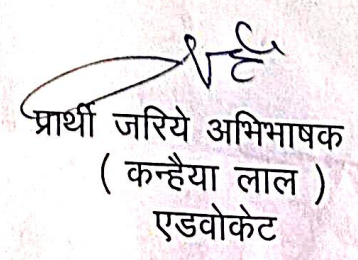 प्रार्थी जरिये अभिभाषक
( कन्हैया लाल )
एडवोकेट